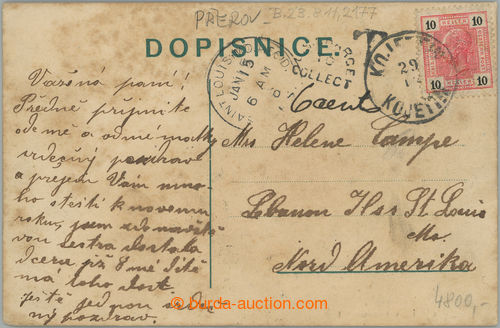 PŘEROV - B.23.8.11, 2177
DOPISNICE.
T
10 HELLER 10
10 10
KOJETEIN
29
KOJETÍN
SAINT LOUIS
JAN 15
6 AM
COLLECT
CENT
Vážená paní!
Předně přijměte
ode mě a odmé matky
srdečný pozdrav
a přejem Vám mno-
ho štěstí k novému
roku, jsem zdomaště
vou sestra dostala
dcera již 8 mé dítě
má toho dost
ještě jednou srde
ný pozdrav.
Mrs Helene Lampe
Lebanon Hss St Louis
Mo.
Nord Amerika
4800,-
burda-auction.com